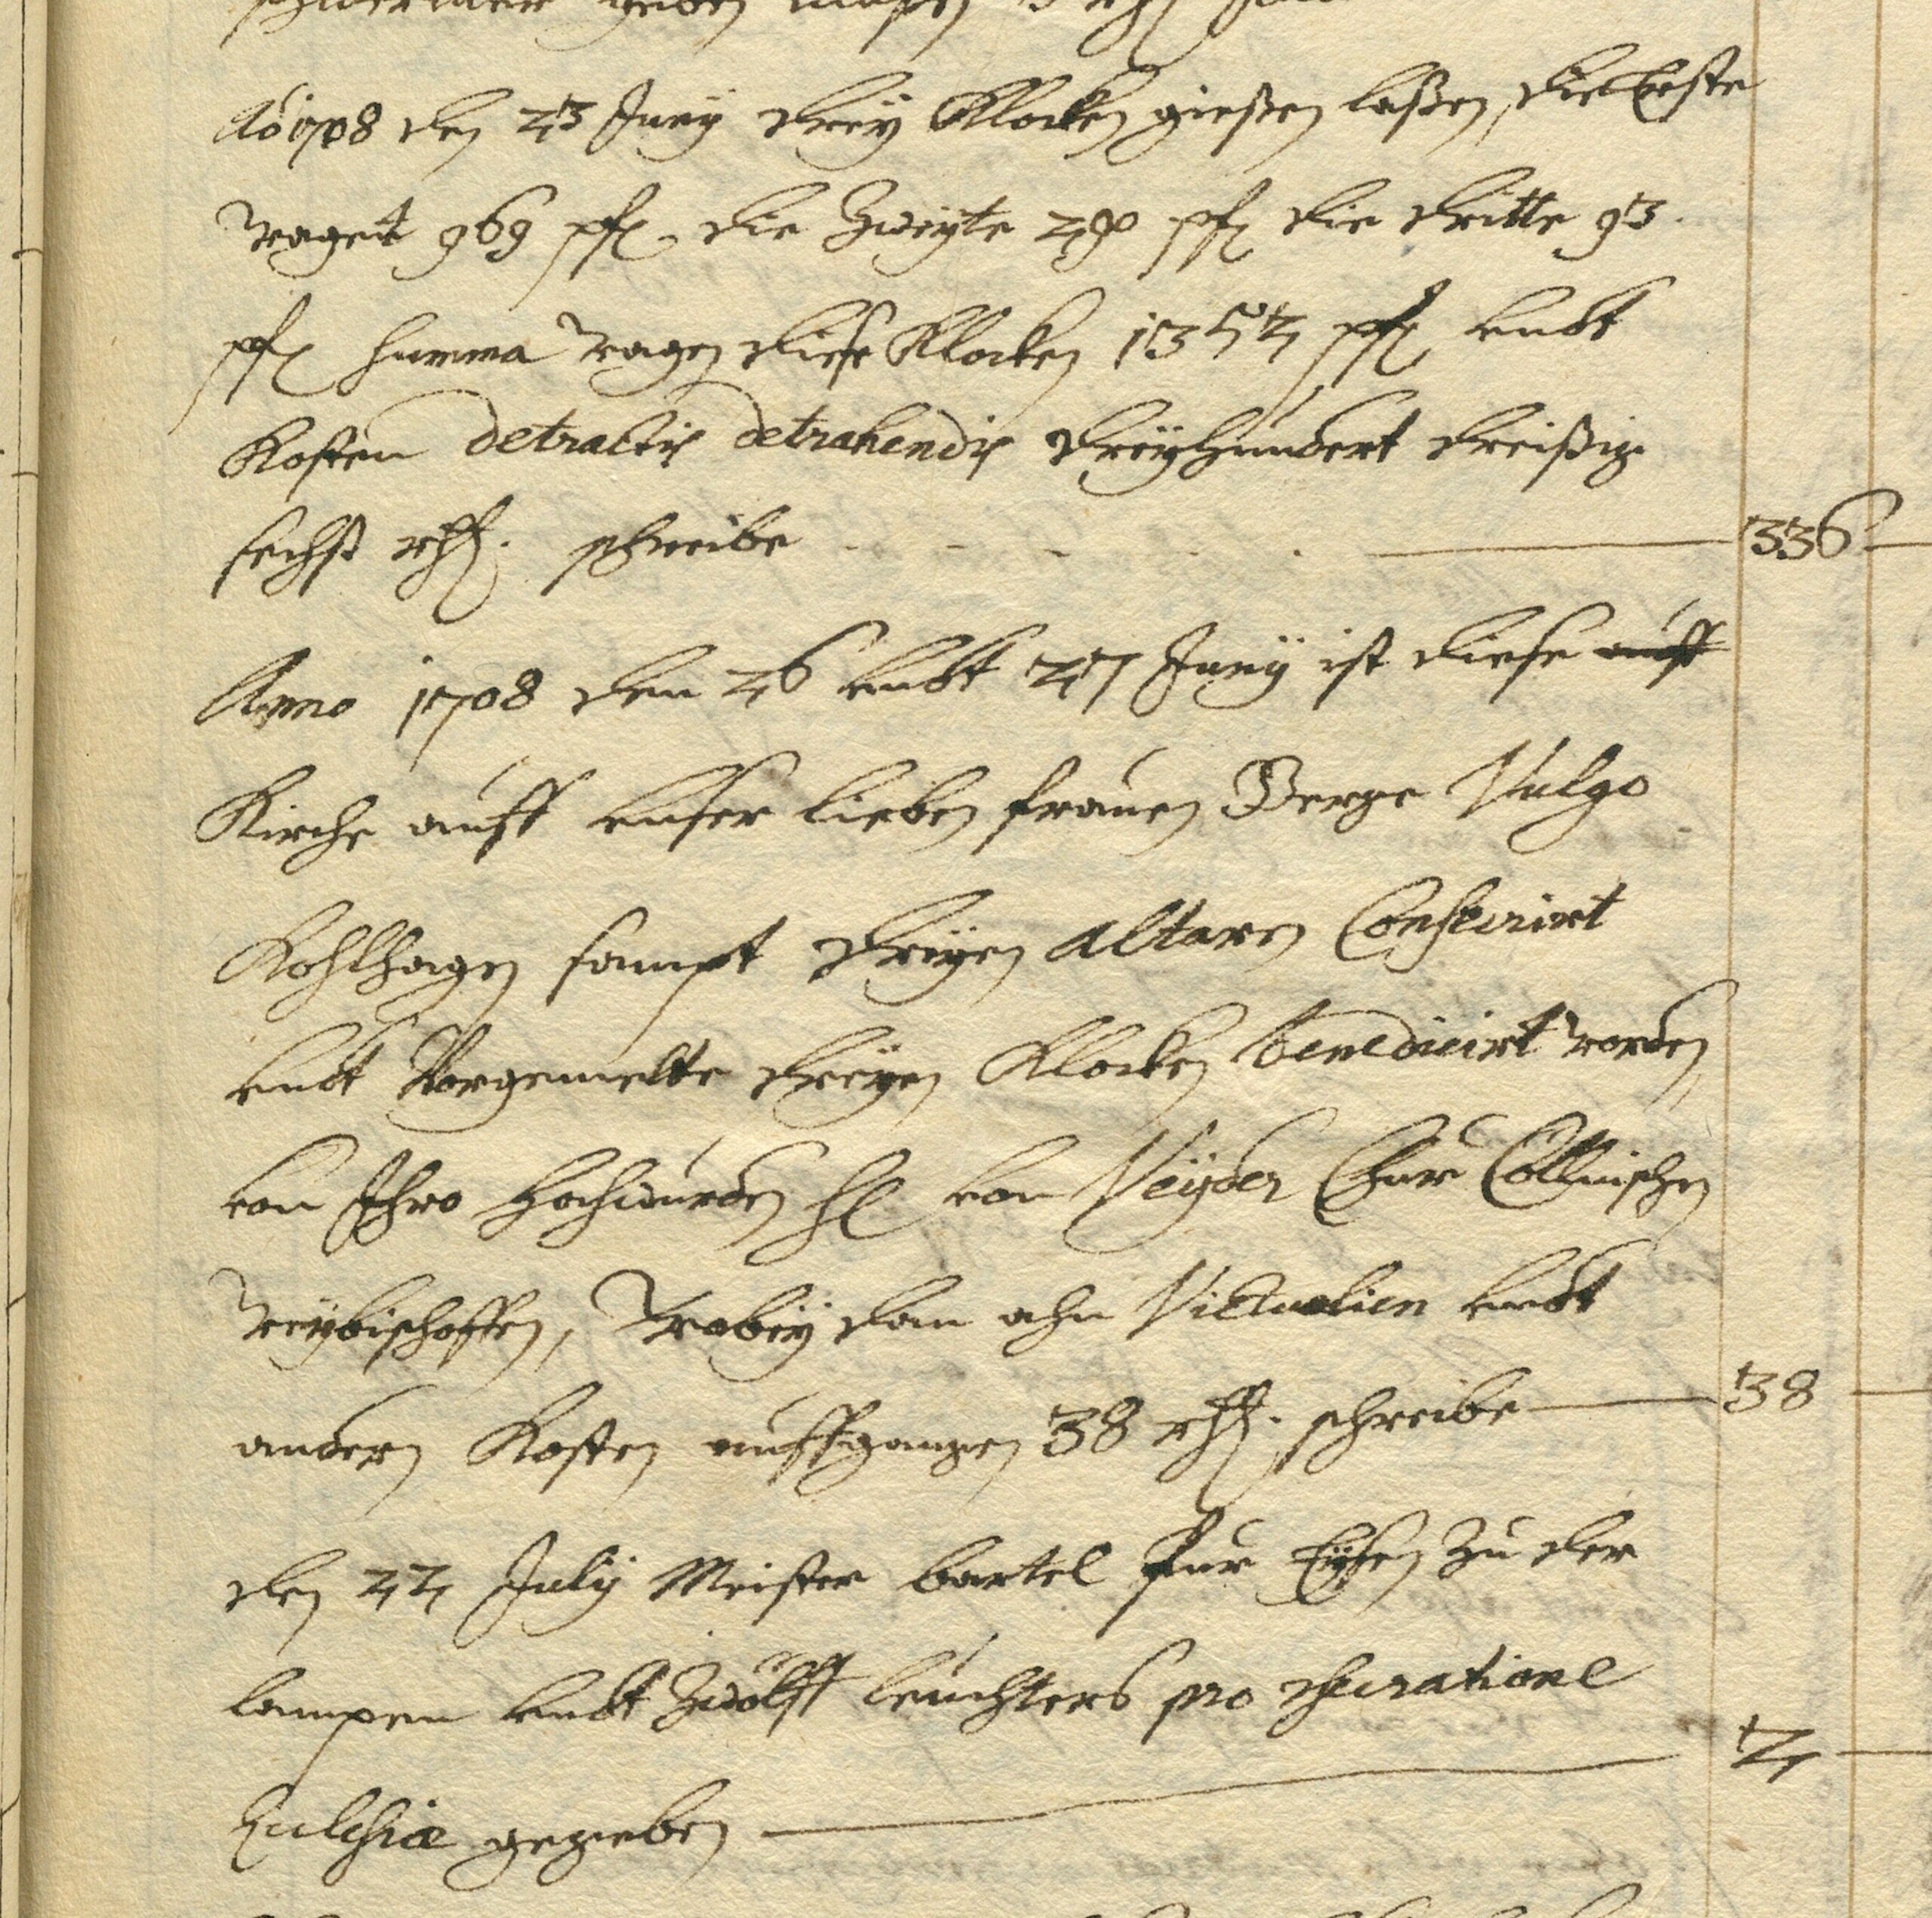 Aõ 1708 den 23 Juny drey Klocken gießen laßen, die Erste
waget 969 pf, die Zweyte 290 pf die dritte 93
pf Summa wagen diese Klocken 1352 pf undt
Kosten detractis detrahendis dreyhundert dreißig
sechß rthl. schreibe 336
Anno 1708 den 26 undt 27 Juny ist diese auff
Kirche auff unser lieben frauen Berge Vulgo
Kohlhagen sampt dreyen altaren Consecrirt
undt Vorgemelte dreyen Klocken benedicirt worden
von Ihro Hochwurden H von Veyder Chur Collnischen
Weybischoffen, Wobey dan ahn Victualien undt
andern Kosten auffgangen 38 rthl. schreibe 38
den 22 July Meister bartel fur Eysen zu der
lampen undt Zwölff leuchters pro Consecratione
Ecclesiæ gegeben 2